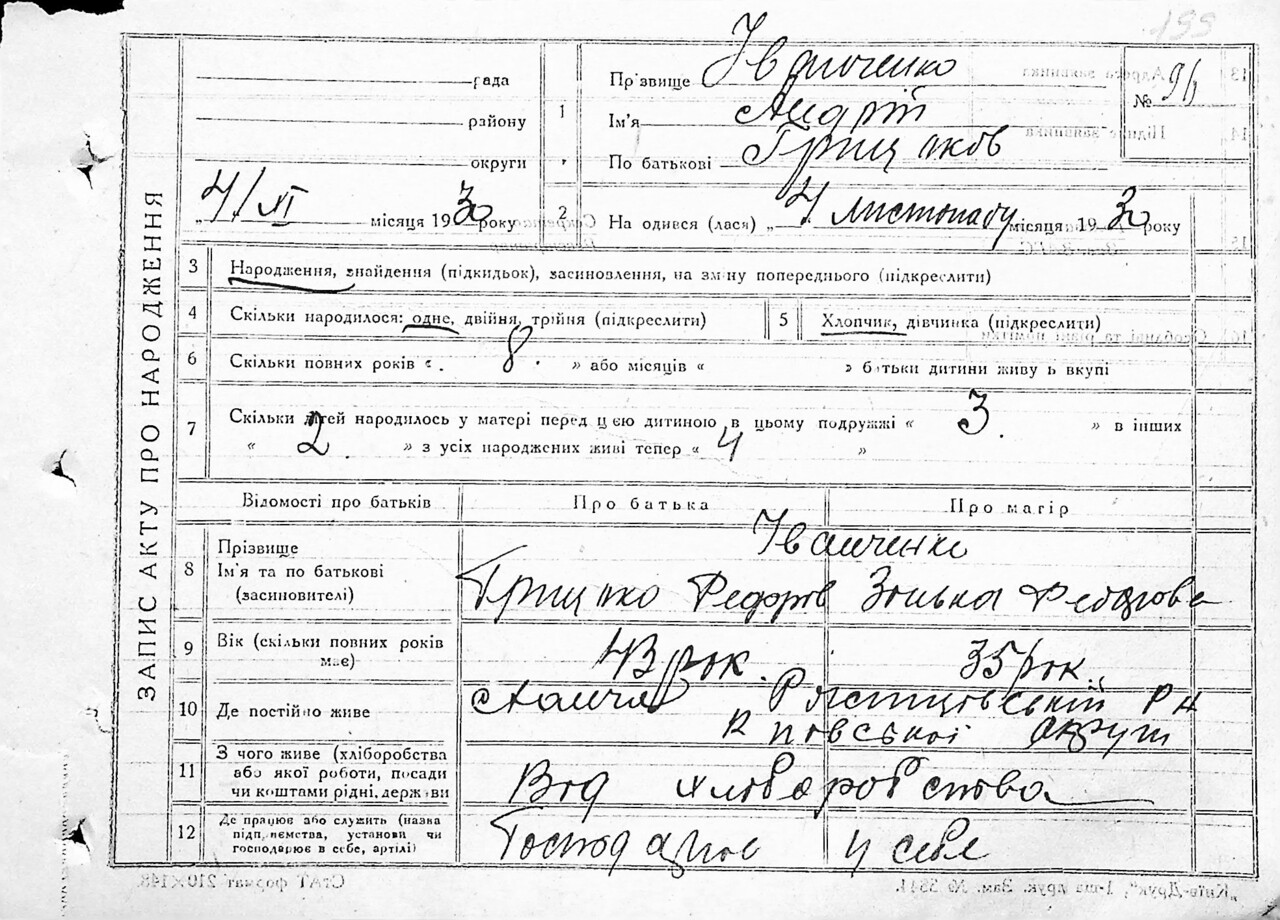 199
ЗАПИС АКТУ ПРО НАРОДЖЕННЯ
рада
району
округи
„ 4/XI місяця 1930 року
1
Пр'звище Іванченко
Ім'я Андрій
По батькові Грицьков
№ 96
2 На одився (лася) „ 4 листопаду місяця 1930 року
3 Народження, знайдення (підкидьок), засиновлення, на зміну попереднього (підкреслити)
4 Скільки народилося: одне, двійня, трійня (підкреслити)
5 Хлопчик, дівчинка (підкреслити)
6 Скільки повних років „ 8. " або місяців „ " батьки дитини живу ь вкупі
7 Скільки дітей народилось у матері перед цією дитиною в цьому подружжі „ 3. " в інших
„ 2. " з усіх народжених живі тепер „ 4 "
Відомості про батьків Про батька Про матір
8 Прізвище Іванченко
Ім'я та по батькові (засиновителі) Грицько Федорів Зінька Федорова
9 Вік (скільки повних років має) 43 рок. 35 рок.
10 Де постійно живе округи
11 З чого живе (хліборобства або якої роботи, посади чи коштами рідні, держави Від хліборобства
12 Де працює або служить (назва підп, иємства, установи чи господарює в себе, артілі) Господарює у себе
СтАТ формат 210×148
„Київ-Друк", 1-ша друк. Зам. №
13 Адреса заявника
14 Підпис заявника
15
16 Особливі та різні помітки